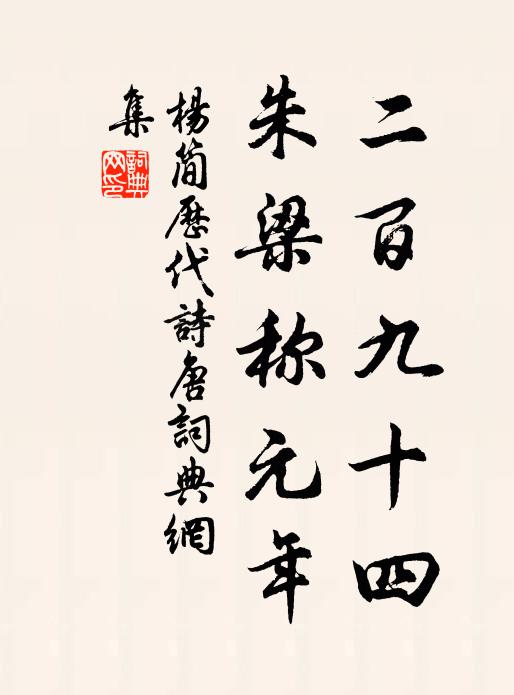 二百九十四
朱梁称元年
楊简歷代詩唐詞典網
集
詞典網印